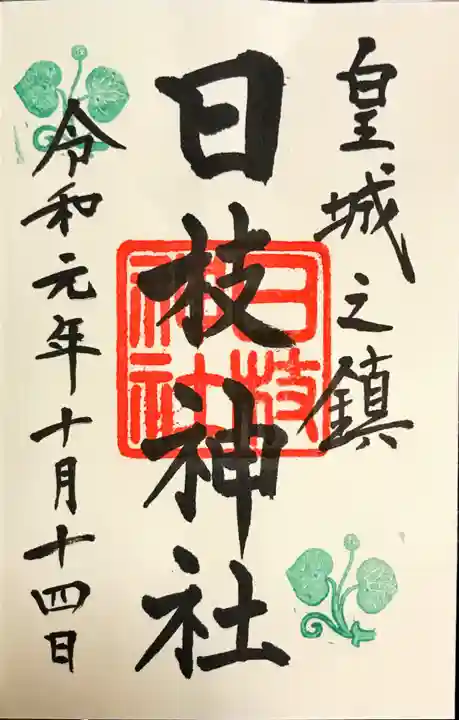 皇城之鎮
日枝神社
日枝神社
令和元年十月十四日